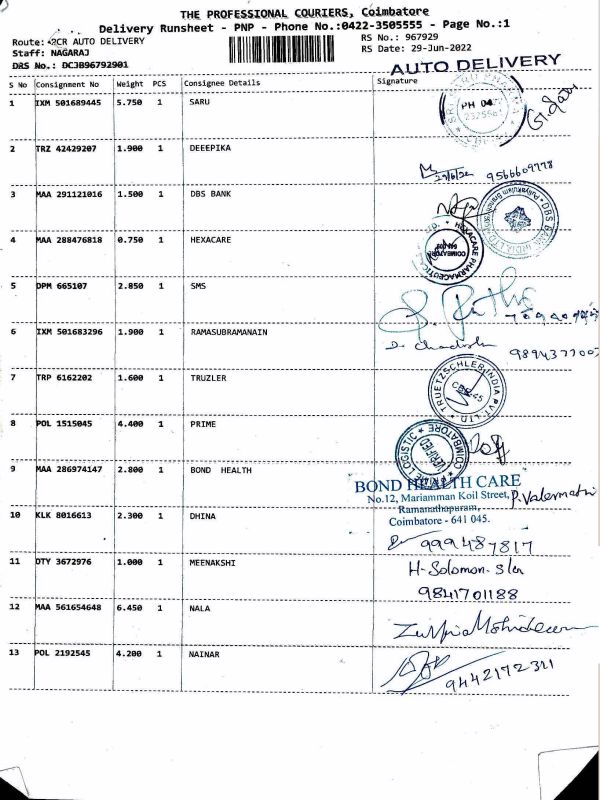 THE PROFESSIONAL COURIERS, Coimbatore
Delivery Runsheet - PNP - Phone No.:0422-3505555 - Page No.:1
Route: 2CR AUTO DELIVERY
RS No.: 967929
Staff: NAGARAJ
RS Date: 29-Jun-2022
DRS No.: DCJB96792901
AUTO DELIVERY
S No Consignment No Weight PCS Consignee Details Signature
1 IXM 501689445 5.750 1 SARU
PH 04
2 TRZ 42429207 1.900 1 DEEEPIKA
29/6/22 9566609778
3 MAA 291121016 1.500 1 DBS BANK
DBS BANK INDIA LTD
4 MAA 288476818 0.750 1 HEXACARE
HEXACARE PHARMACEUTICAL
COIMBATORE
5 DPM 665107 2.850 1 SMS
6 IXM 501683296 1.900 1 RAMASUBRAMANAIN
7 TRP 6162202 1.600 1 TRUZLER
TRUETZSCHLER INDIA PVT LTD
8 POL 1515045 4.400 1 PRIME
LOGISTIC COIMBATORE
VERIFIED
9 MAA 286974147 2.800 1 BOND HEALTH
BOND HEALTH CARE
No.12, Mariamman Koil Street,
Ramanathapuram,
Coimbatore - 641 045.
10 KLK 8016613 2.300 1 DHINA
999487817
11 DTY 3672976 1.000 1 MEENAKSHI
H-Solomon
9841701188
12 MAA 561654648 6.450 1 NALA
13 POL 2192545 4.200 1 NAINAR
9442172311